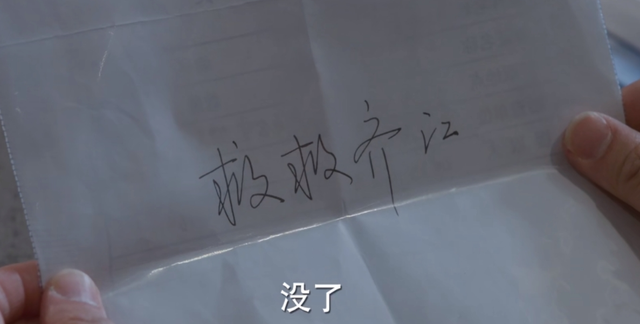 救救齐江
没了